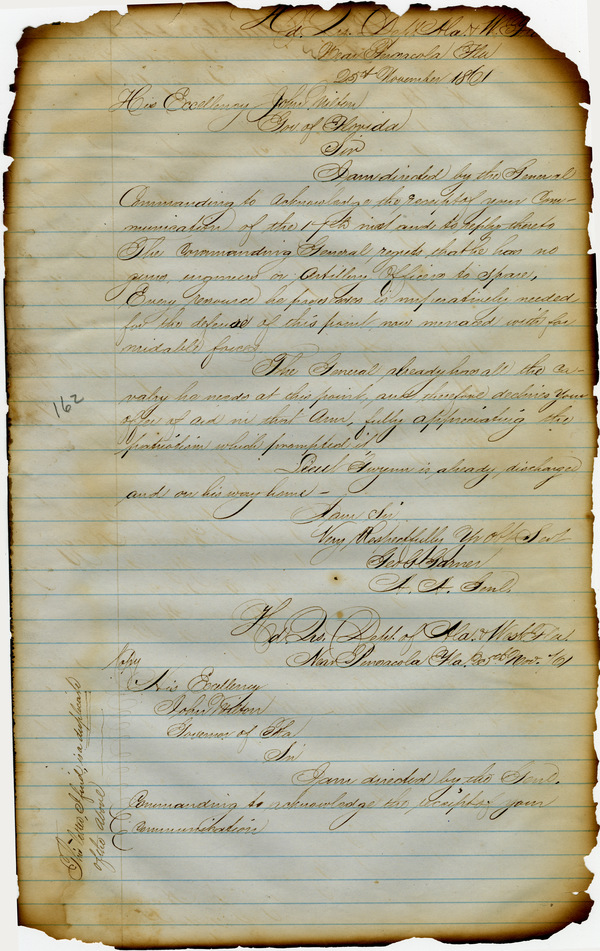 Hd. Qrs. Dept. Ala. & W. Fla
Near Pensacola Fla
25th November 1861
His Excellency John Milton
Gov of Florida
Sir
I am directed by the General
Commanding to acknowledge the receipt of your Com-
munication of the 17th inst and to reply thereto
The Commanding General regrets that he has no
guns, engineers or Artillery Officers to spare,
Every resource he possesses is imperatively needed
for the defense of this point, now menaced with for
midable forces
The General already has all the ca-
valry he needs at this point, and therefore declines your
offer of aid in that Arm, fully appreciating the
patriotism which prompted it
Lieut is already discharged
and on his way home -
I am Sir
Very Respectfully Yr Obt Servt
Geo G Garner
A. A. Genl.
Hd. Qrs. Dept. of Ala. & West Fla
Near Pensacola Fla. 25th Nov. /61
Copy
His Excellency
John Milton
Governor of Fla
Sir
I am directed by the Genl.
Commanding to acknowledge the receipt of your
Communication
162
This was filed in duplicate
of the above